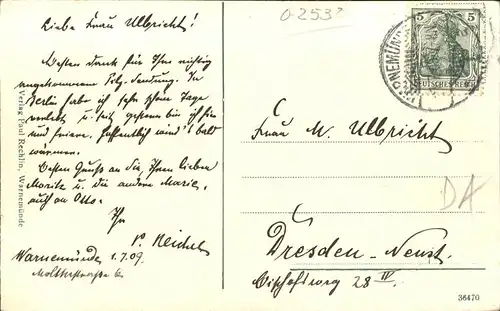 O-253?
Liebe Frau Ulbricht!
Besten Dank für Ihre richtig
angekommene Pilz-Sendung. In
Berlin habe ich sehr schöne Tage
verlebt u. seit gestern bin ich hier
und friere. Hoffentlich wird's bald
wärmer.
Besten Gruss an die, Ihren lieben
Moritz u. die andere Marie,
auch an Otto.
Ihr
P. Reichel
Warnemünde 1.7.09.
Moltkestrasse 6.
Verlag Paul Rechlin, Warnemünde
5
DEUTSCHES REICH
Frau M. Ulbricht
DA
Dresden-Neust.
Bischofsweg 28 IV.
36470